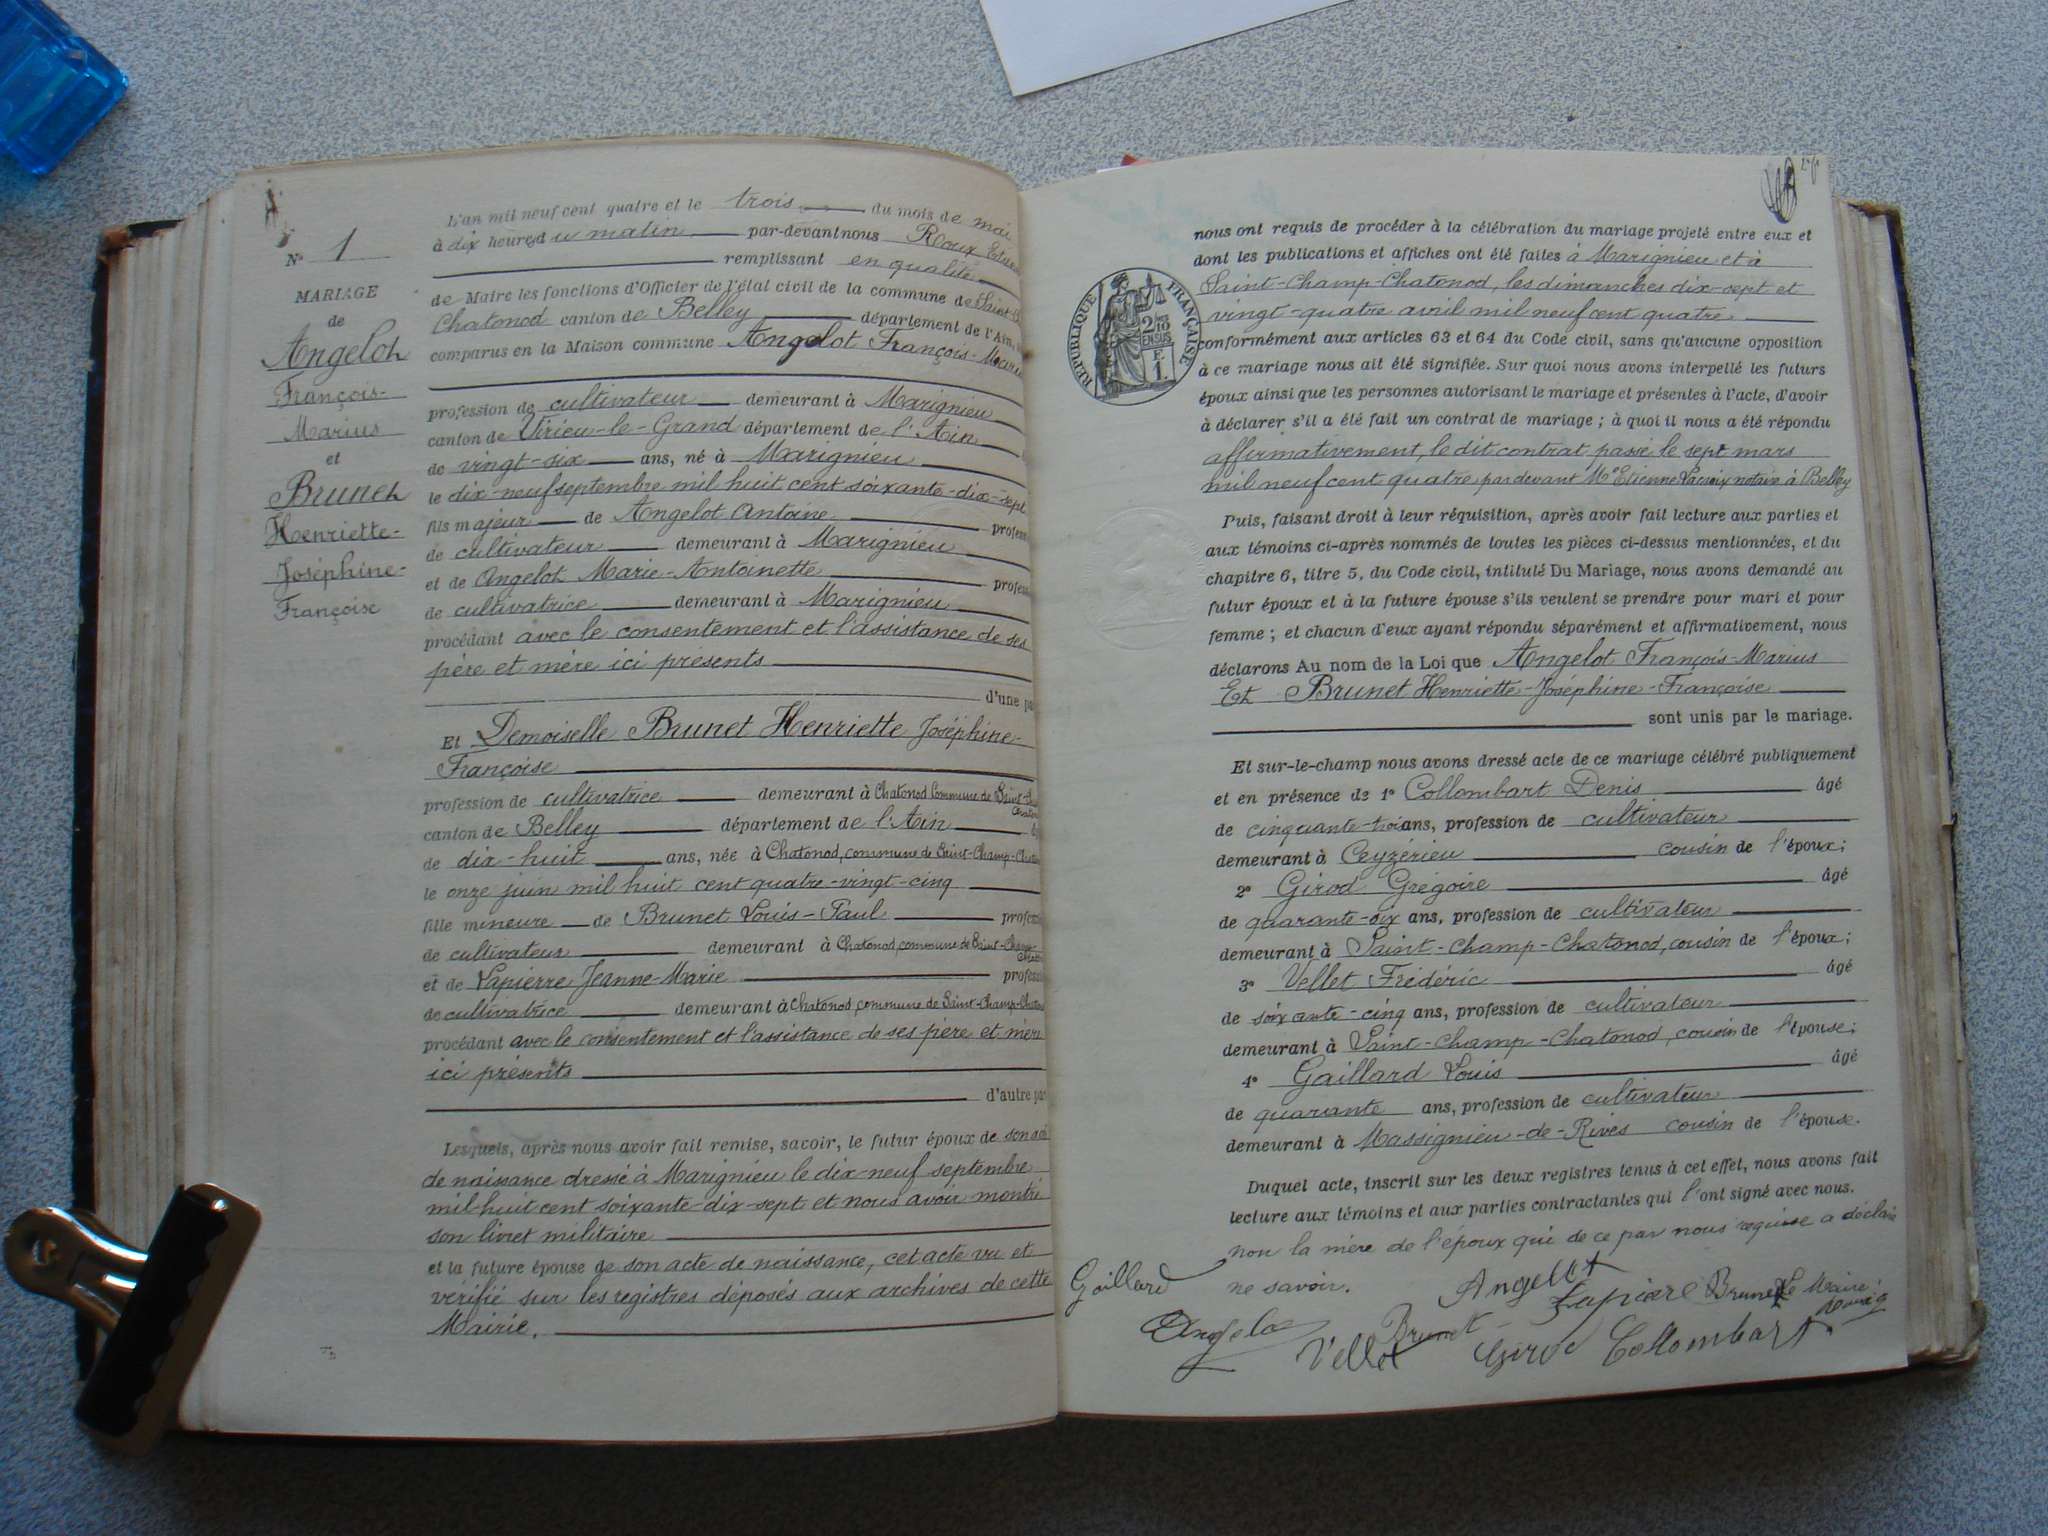 L'an mil neuf cent quatre et le trois du mois de mai
à dix heures du matin par-devant nous Roux
remplissant en qualité
de Maire les fonctions d'Officier de l'état civil de la commune de Saint-
Chatonod canton de Belley département de l'Ain,
comparus en la Maison commune Angelot François-Marius
profession de cultivateur demeurant à Marignieu
canton de Virieu-le-Grand département de l'Ain
de vingt-six ans, né à Marignieu
le dix-neuf septembre mil huit cent soixante-dix-sept
fils majeur de Angelot Antoine
de cultivateur demeurant à Marignieu
et de Angelot Marie-Antoinette
de cultivatrice demeurant à Marignieu
procédant avec le consentement et l'assistance de ses
père et mère ici présents
d'une
Et Demoiselle Brunet Henriette Joséphine-
Françoise
profession de cultivatrice demeurant à Chatonod Commune de Saint-
canton de Belley département de l'Ain
de dix-huit ans, née à Chatonod, commune de Saint-Champ-
le onze juin mil huit cent quatre-vingt-cinq
fille mineure de Brunet Louis-Paul
de cultivateur demeurant à Chatonod, commune de Saint-Champ-
et de Lapierre Jeanne-Marie
de cultivatrice demeurant à Chatonod, commune de Saint-Champ-
procédant avec le consentement et l'assistance de ses père et mère
ici présents
d'autre
Lesquels, après nous avoir fait remise, savoir, le futur époux de son acte
de naissance dressé à Marignieu le dix-neuf septembre
mil huit cent soixante-dix-sept et nous avoir montré
son livret militaire
et la future épouse de son acte de naissance, cet acte vu et
vérifié sur les registres déposés aux archives de cette
Mairie.
N° 1
MARIAGE
de
Angelot
François-
Marius
et
Brunet
Henriette-
Joséphine-
Françoise
RÉPUBLIQUE FRANÇAISE
2/10
EN SUS
F
1
nous ont requis de procéder à la célébration du mariage projeté entre eux et
dont les publications et affiches ont été faites à Marignieu et à
Saint-Champ-Chatonod, les dimanches dix-sept et
vingt-quatre avril mil neuf cent quatre
conformément aux articles 63 et 64 du Code civil, sans qu'aucune opposition
à ce mariage nous ait été signifiée. Sur quoi nous avons interpellé les futurs
époux ainsi que les personnes autorisant le mariage et présentes à l'acte, d'avoir
à déclarer s'il a été fait un contrat de mariage ; à quoi il nous a été répondu
affirmativement, le dit contrat passé le sept mars
mil neuf cent quatre par devant Me Etienne Lacroix notaire à Belley
Puis, faisant droit à leur réquisition, après avoir fait lecture aux parties et
aux témoins ci-après nommés de toutes les pièces ci-dessus mentionnées, et du
chapitre 6, titre 5, du Code civil, intitulé Du Mariage, nous avons demandé au
futur époux et à la future épouse s'ils veulent se prendre pour mari et pour
femme ; et chacun d'eux ayant répondu séparément et affirmativement, nous
déclarons Au nom de la Loi que Angelot François-Marius
Et Brunet Henriette-Joséphine-Françoise
sont unis par le mariage.
Et sur-le-champ nous avons dressé acte de ce mariage célébré publiquement
et en présence de 1° Collombart Denis âgé
de cinquante-trois ans, profession de cultivateur
demeurant à Ceyzérieu cousin de l'époux ;
2° Girod Grégoire âgé
de quarante-six ans, profession de cultivateur
demeurant à Saint-Champ-Chatonod, cousin de l'époux ;
3° Vellet Frédéric âgé
de soixante-cinq ans, profession de cultivateur
demeurant à Saint-Champ-Chatonod, cousin de l'épouse ;
4° Gaillard Louis âgé
de quarante ans, profession de cultivateur
demeurant à Massignieu-de-Rives cousin de l'épouse.
Duquel acte, inscrit sur les deux registres tenus à cet effet, nous avons fait
lecture aux témoins et aux parties contractantes qui l'ont signé avec nous.
non la mère de l'époux qui de ce par nous requise a déclaré
ne savoir.
Gaillard
Angelot
Lapierre Brunet Le Maire
Angelot
Brunet
Vellet
Girod Collombart